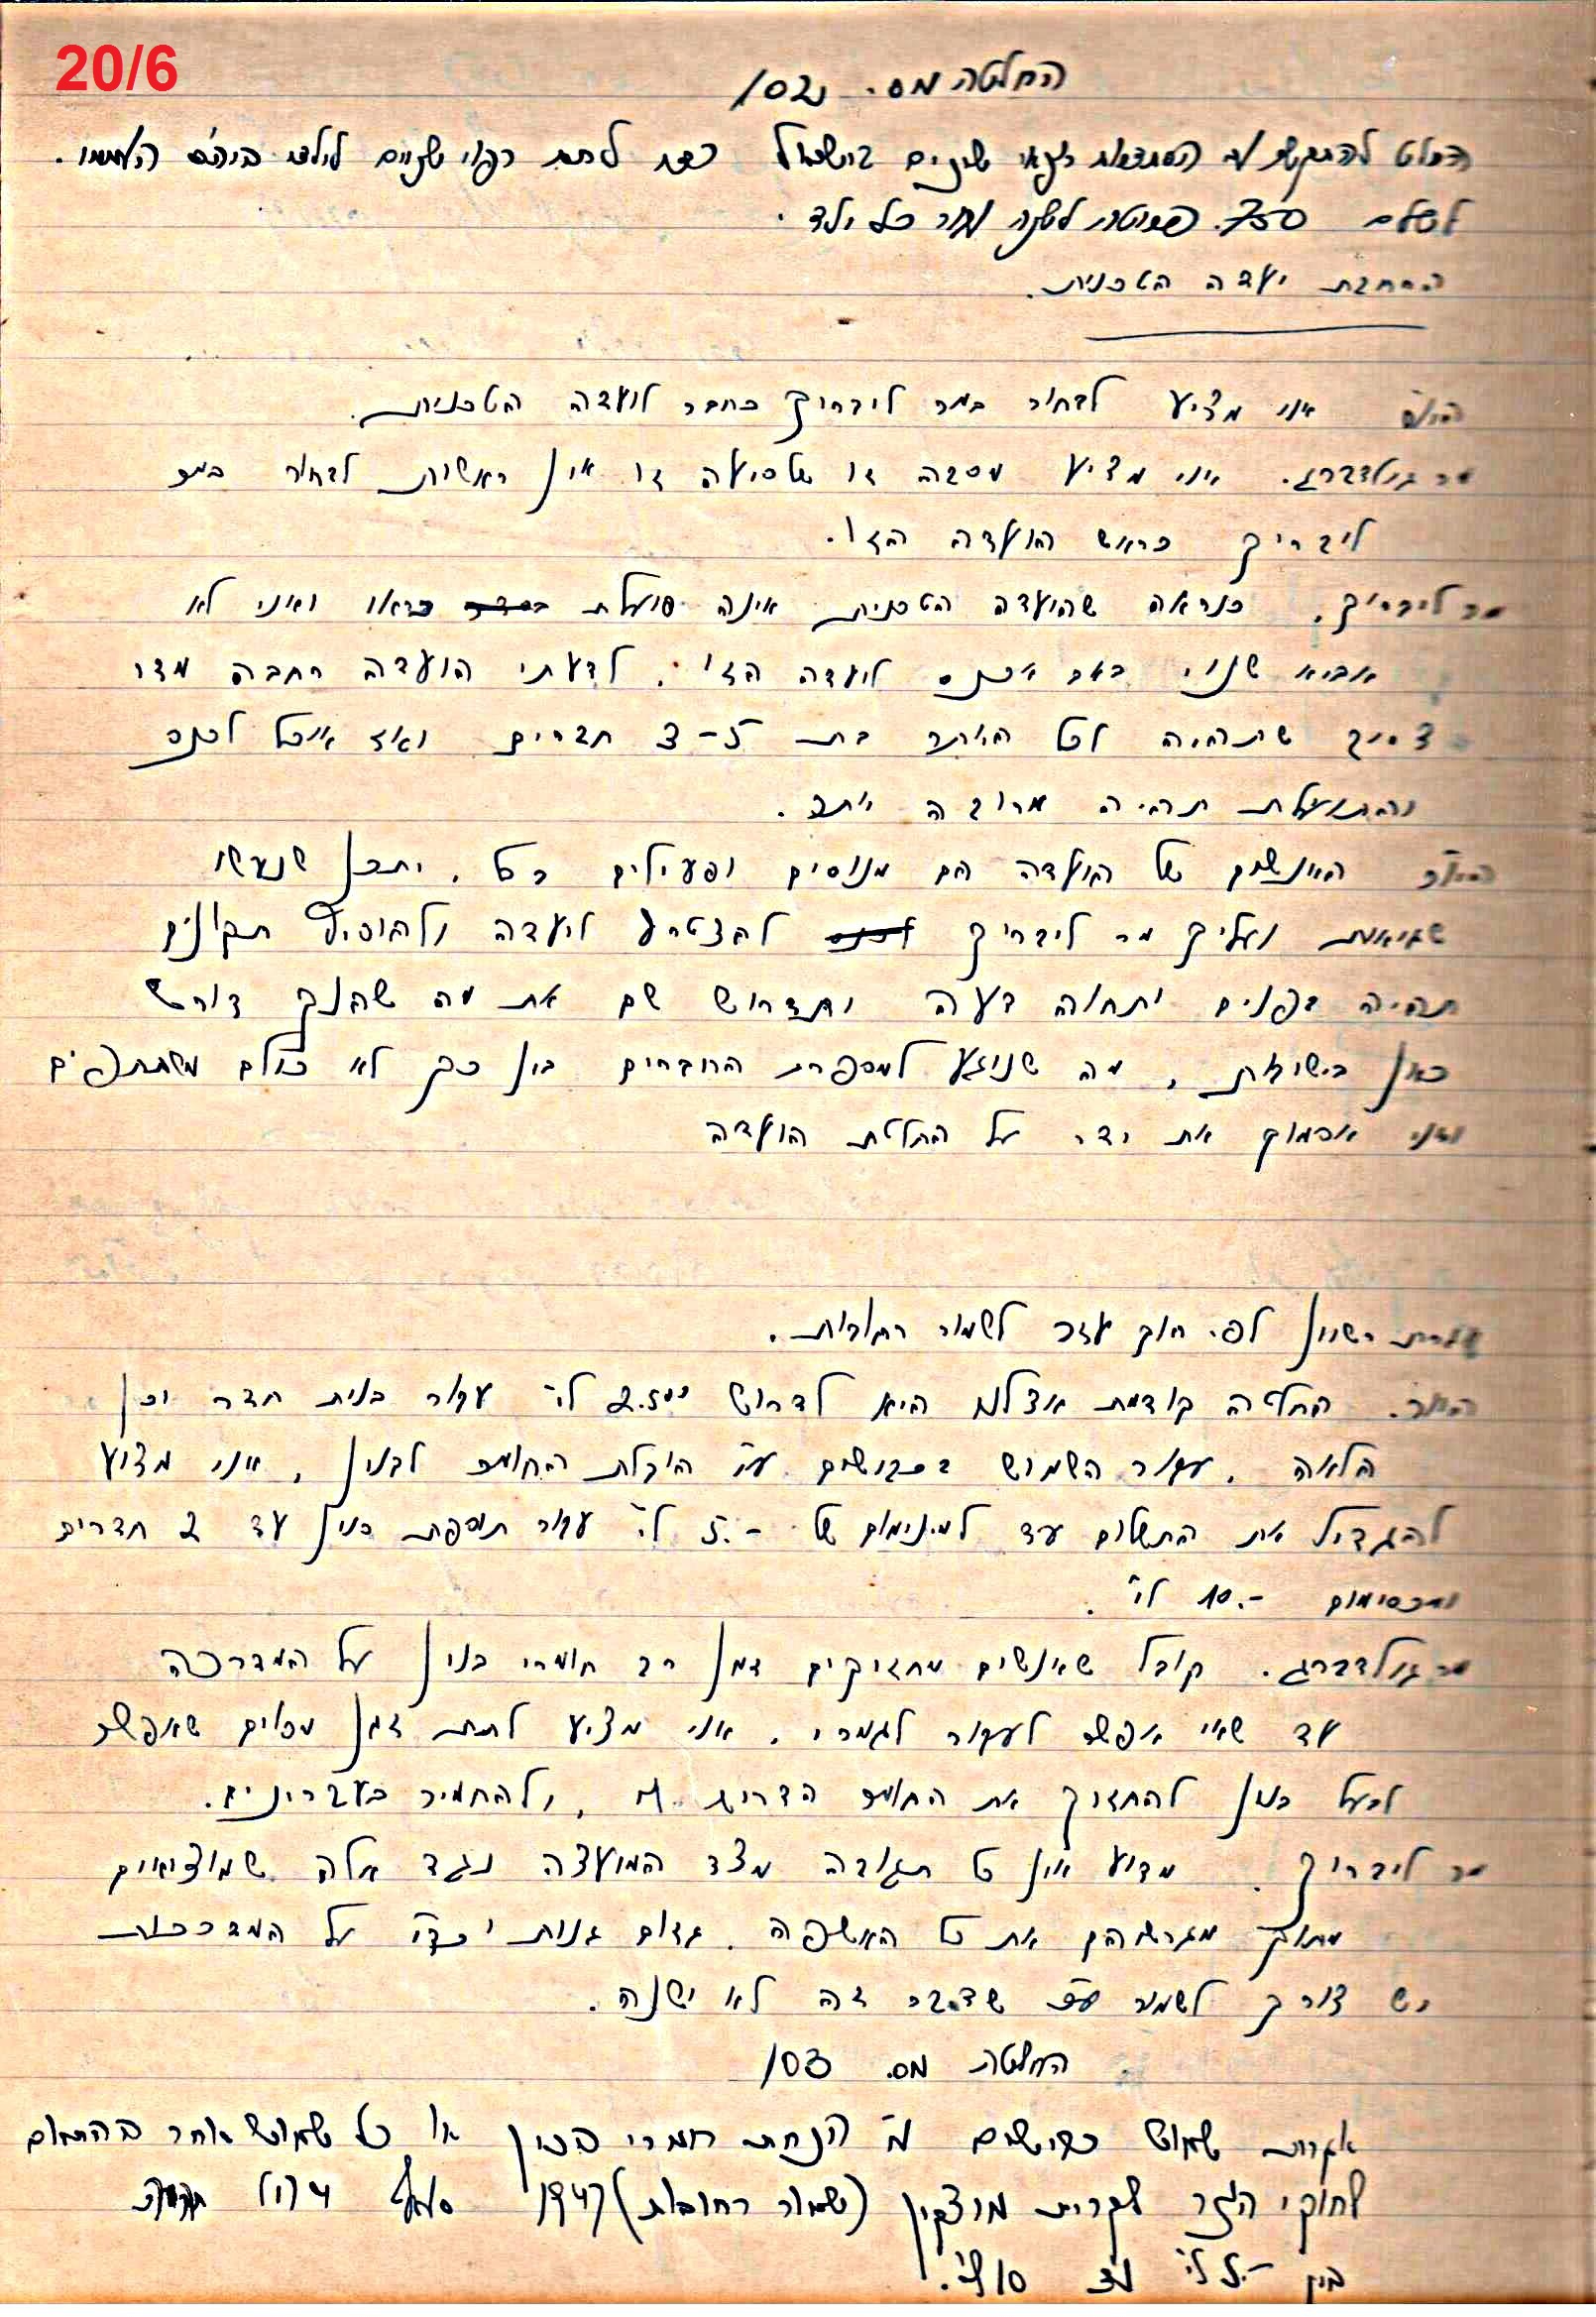 20/6
החלטה מס. 102
הוחלט להתקשר עם הסתדרות רופאי שינים בישראל לתת רפוי שניים לילדי ביה"ס העממי.
לשלם 750 פרוטות לשנה עבור כל ילד.
הרחבת ועדה הטכנית.
אני מציע לבחור במר ליבריך כחבר לועדה הטכנית.
מר גולדברג. אני מציע מסבה זו שלסיעה זו אין ראשות לבחור במר
ליבריך כראש הועדה הזו.
מר ליבריך. כנראה שהועדה הטכנית אינה פועלת כראוי ואני לא
אביא שנוי באם אכנס לועדה הזו. לדעתי הועדה רחבה מדי
צריך שתהיה לכל היותר בת 3-5 חברים ואז אוכל לכנס
והתועלת תהיה מרובה יותר.
האנשים של הועדה הם מנוסים ופעילים. יתכן שנעשו
שגיאות ועליך מר ליבריך להצטרף לועדה ולהוסיף תקונים
תהיה בפנים ותחוה דעה ותדרוש שם את מה שהנך דורש
כאן בישיבות, מה שנוגע למספרת החברים בין כך לא כולם משתתפים
ואני אסמוך את ידי על החלטת הועדה
אגרת רשיון לפי חוק עזר לשמור רחובות.
היו"ר. החלטה קודמת אצלנו היא לדרוש 2.500 ל"י עבור בנית חדר וכן
הלאה. עבור השמוש בכבישים ע"י הובלת החומר לבנין, אני מציע
להגדיל את התשלום עד למינימום של 5.- ל"י עבור תוספת בנין עד 2 חדרים
ומכסימום 10.- ל"י.
מר גולדברג. קובל שאנשים מחזיקים זמן רב חומרי בנין על המדרכה
עד שאי אפשר לעבור לגמרי. אני מציע לתת זמן מסוים שאפשר
לבעל בנין להחזיק את החומר הדרוש לו, ולהחמיר בעברינים.
מר ליבריך. מדוע אין כל תגובה מצד המועצה נגד אלה שמוציאים
מתוך מגרשיהם את כל האשפה. גזום גנות וכד' על המדרכות
יש צורך לשמור שדבר זה לא ישנה.
החלטה מס. 103
אגרות שמוש כבישים הנחת חמרי בנין או כל שמוש אחר בהתאם
לחוקי העזר לקרית מוצקין (שמור רחובות) 1947 סעיף
בין 5.- ל"י עד 10 ל"י.